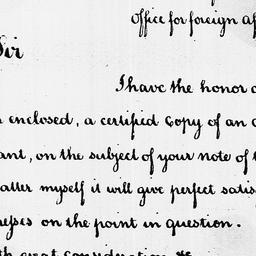 Office for foreign Af
Sir
I have the honor
enclosed, a certified Copy of an
ant, on the subject of your note of
atter myself it will give perfect satis
nesses on the point in question.
th great consideration &c